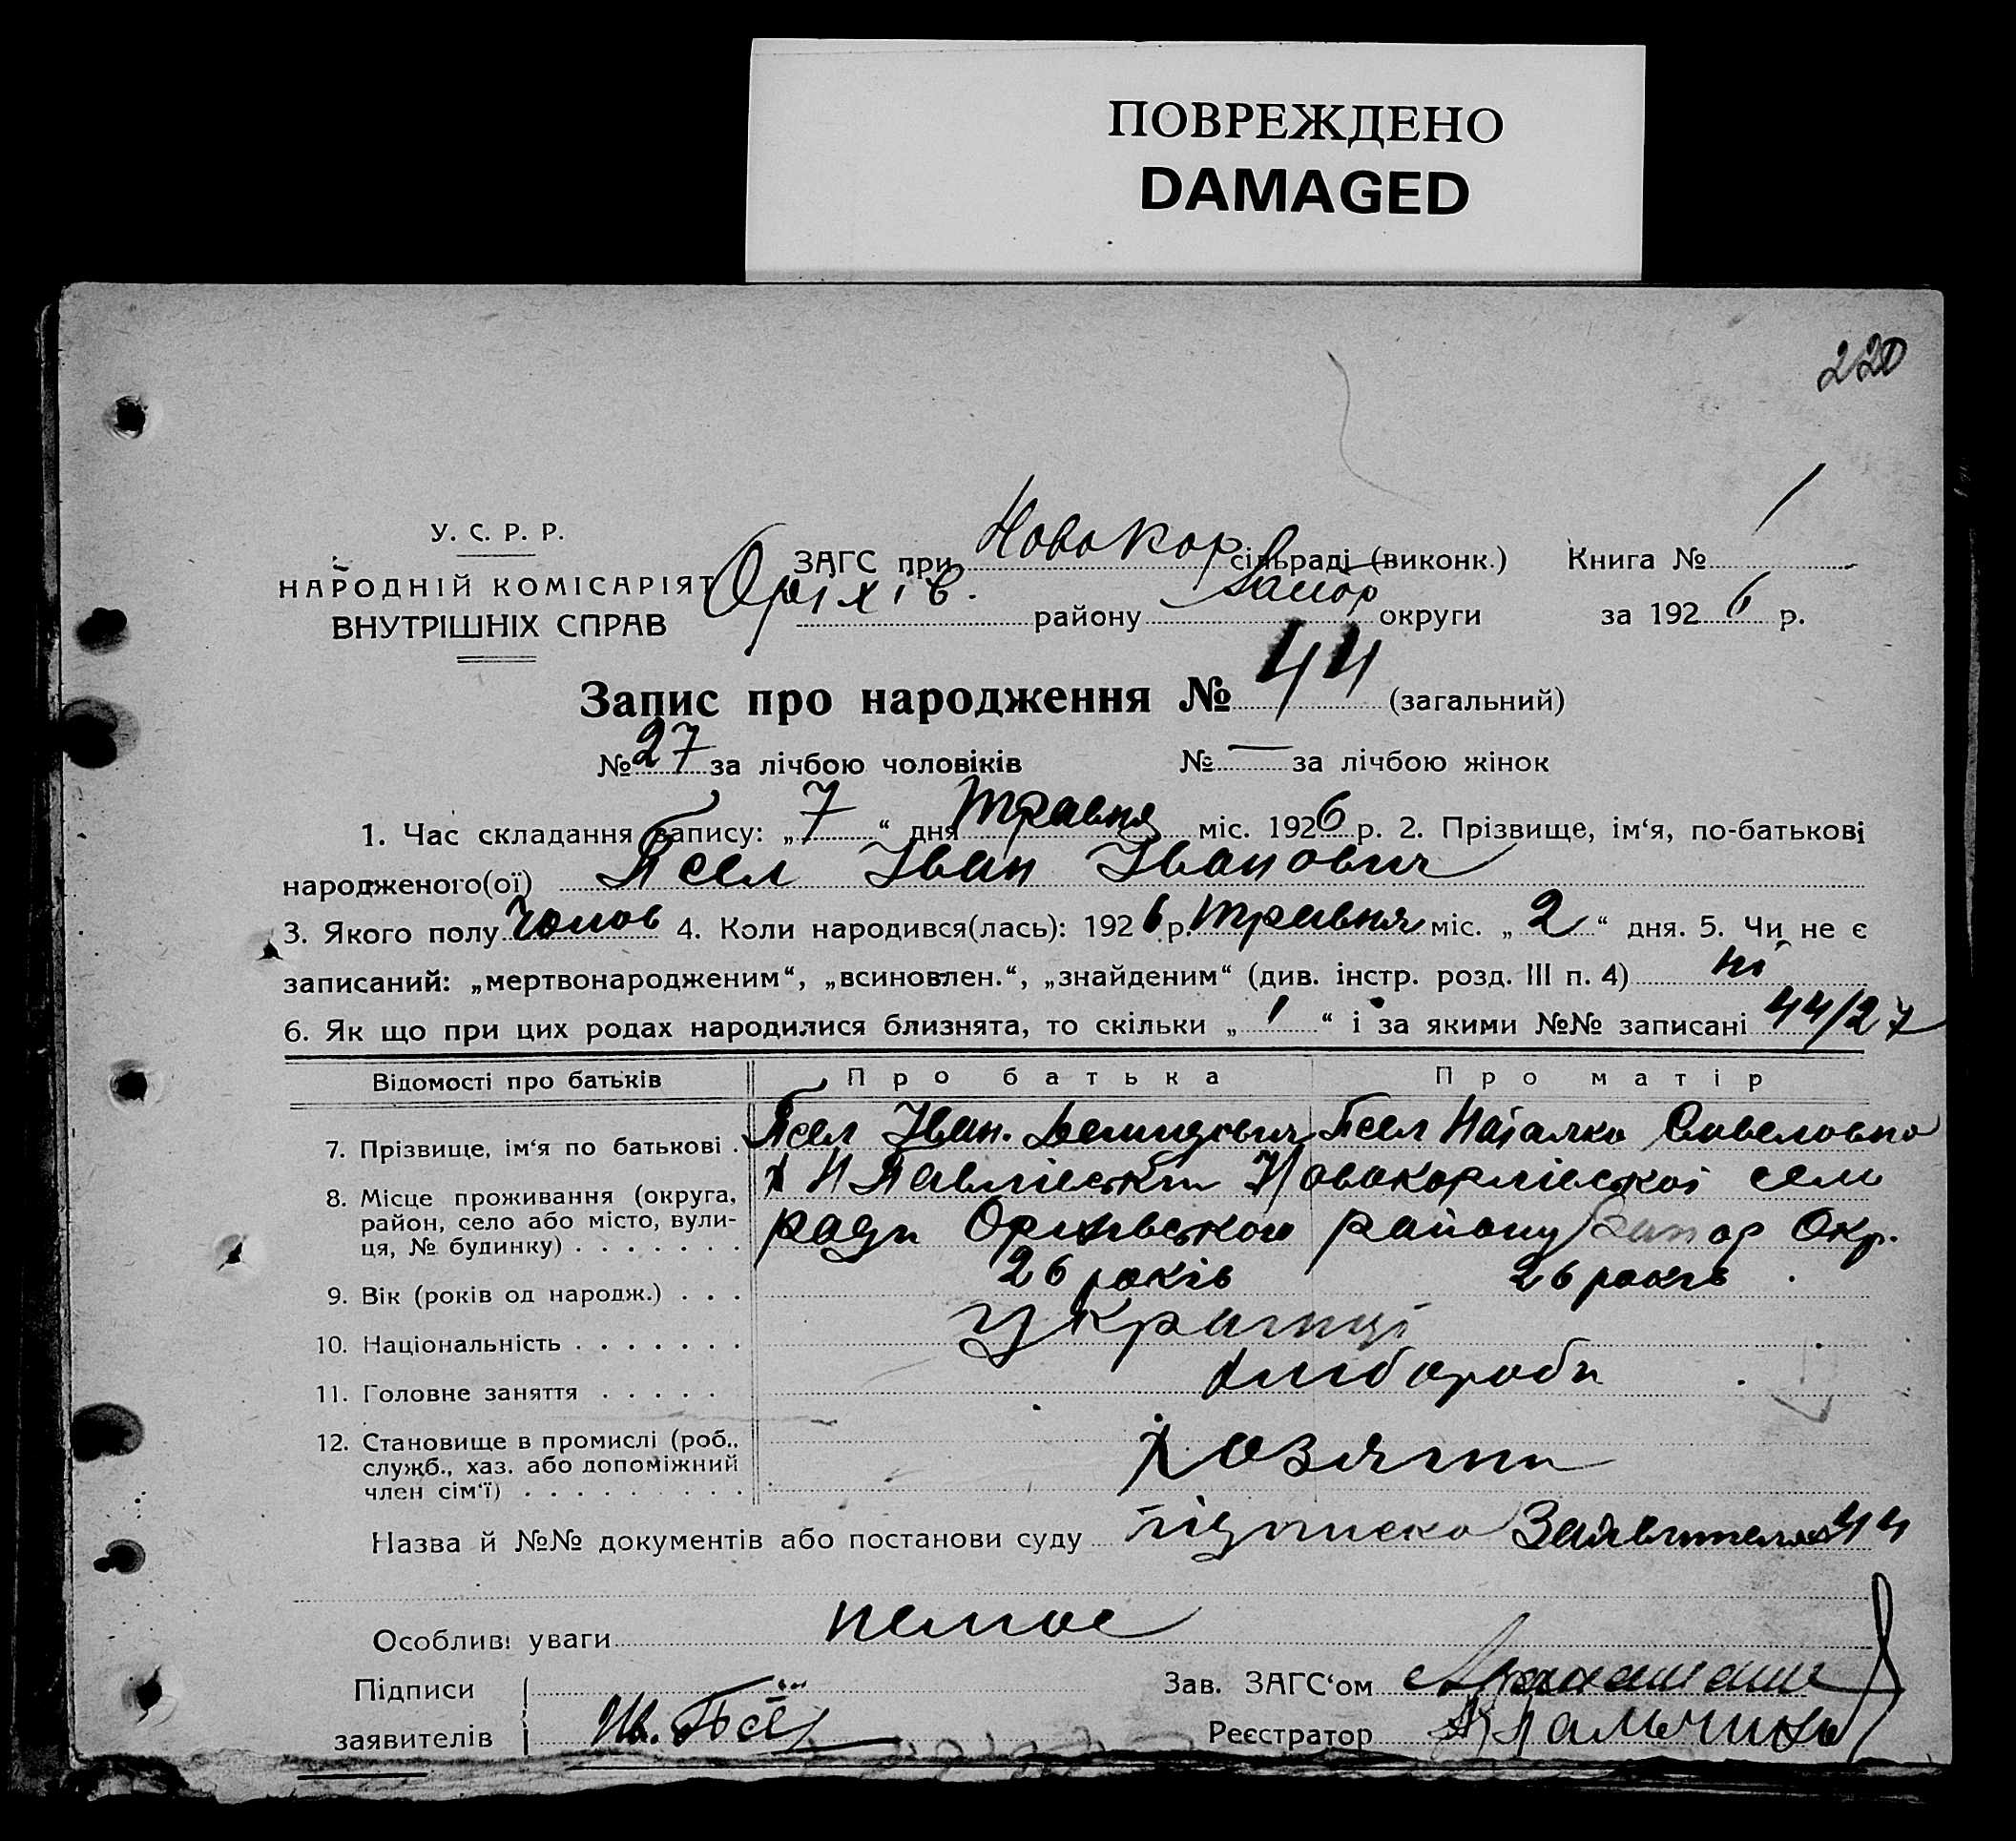 ПОВРЕЖДЕНО
DAMAGED
220
У. С. Р. Р.
НАРОДНІЙ КОМІСАРІЯТ
ВНУТРІШНІХ СПРАВ
ЗАГС при Новокор сільраді (виконк.) Книга № 1
Оріхів. району Запор округи за 1926 р.
Запис про народження № 44 (загальний)
№ 27 за лічбою чоловіків № — за лічбою жінок
1. Час складання запису: „ 7 “ дня травня міс. 1926 р. 2. Прізвище, ім‘я, по-батькові
народженого(ої) Псел Іван Іванович
3. Якого полу чолов 4. Коли народився(лась): 1926 р. травня міс. „ 2 “ дня. 5. Чи не є
записаний: „мертвонародженим“, „всиновлен.“, „знайденим“ (див. інстр. розд. III п. 4) ні
6. Як що при цих родах народилися близнята, то скільки „ 1 “ і за якими №№ записані 44/27
Відомості про батьків Про батька Про матір
7. Прізвище, ім‘я по батькові . Псел Іван. Демидович Псел Наталка Савеловна
8. Місце проживання (округа, район, село або місто, вули- ця, № будинку) . . . . . . . х Н Павлівськи Новокарлівської сель
ради Оріхівського району Запор Окр.
9. Вік (років од народж.) . . . 26 років 26 років
10. Національність . . . . . . . українці
11. Головне заняття . . . . . хлібороби
12. Становище в промислі (роб., служб., хаз. або допоміжний член сім‘ї) . . . . . . . . . хозяїни
Назва й №№ документів або постанови суду підписка Заявителя 44
Особливі уваги немає
Підписи Зав. ЗАГС‘ом
заявителів Ив. Реєстратор